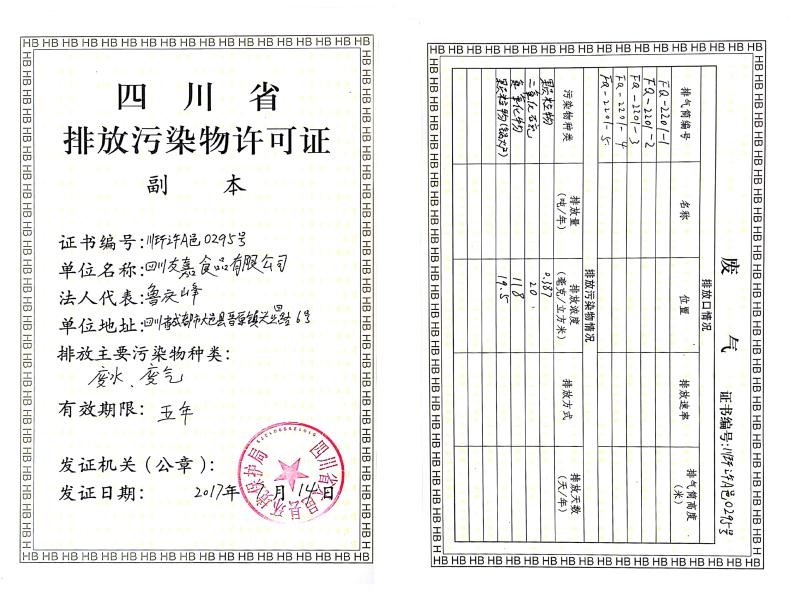 四川省
排放污染物许可证
副 本
证书编号:川环许A邑0295号
单位名称:四川友嘉食品有限公司
法人代表:鲁云峰
单位地址:四川省成都市大邑县晋原镇兴业四路6号
排放主要污染物种类:
废水、废气
有效期限:五年
发证机关(公章):
发证日期: 2017年 月14日
四川省大邑县环境保护局
废 气
证书编号:川环许A邑0295号
排放口情况
排气筒编号 名称 位置 排放速率 排气筒高度(米)
FQ-2201-1
FQ-2201-2
FQ-2201-3
FQ-2201-4
FQ-2201-5
排放污染物情况
污染物种类 排放量(吨/年) 排放浓度(毫克/立方米) 排放方式 排放天数(天/年)
颗粒物 0.387
二氧化硫 20
氮氧化物 118
颗粒物 19.5